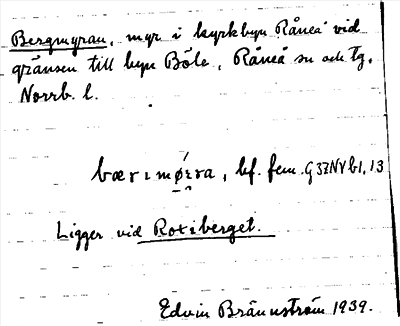 Bergmyran, myr i kyrkbyn Råneå vid
gränsen till byn Böle, Råneå sn och tg,
Norrb. l.
bf. fem. G37NV b1,13
Ligger vid
Edvin Brännström 1939.